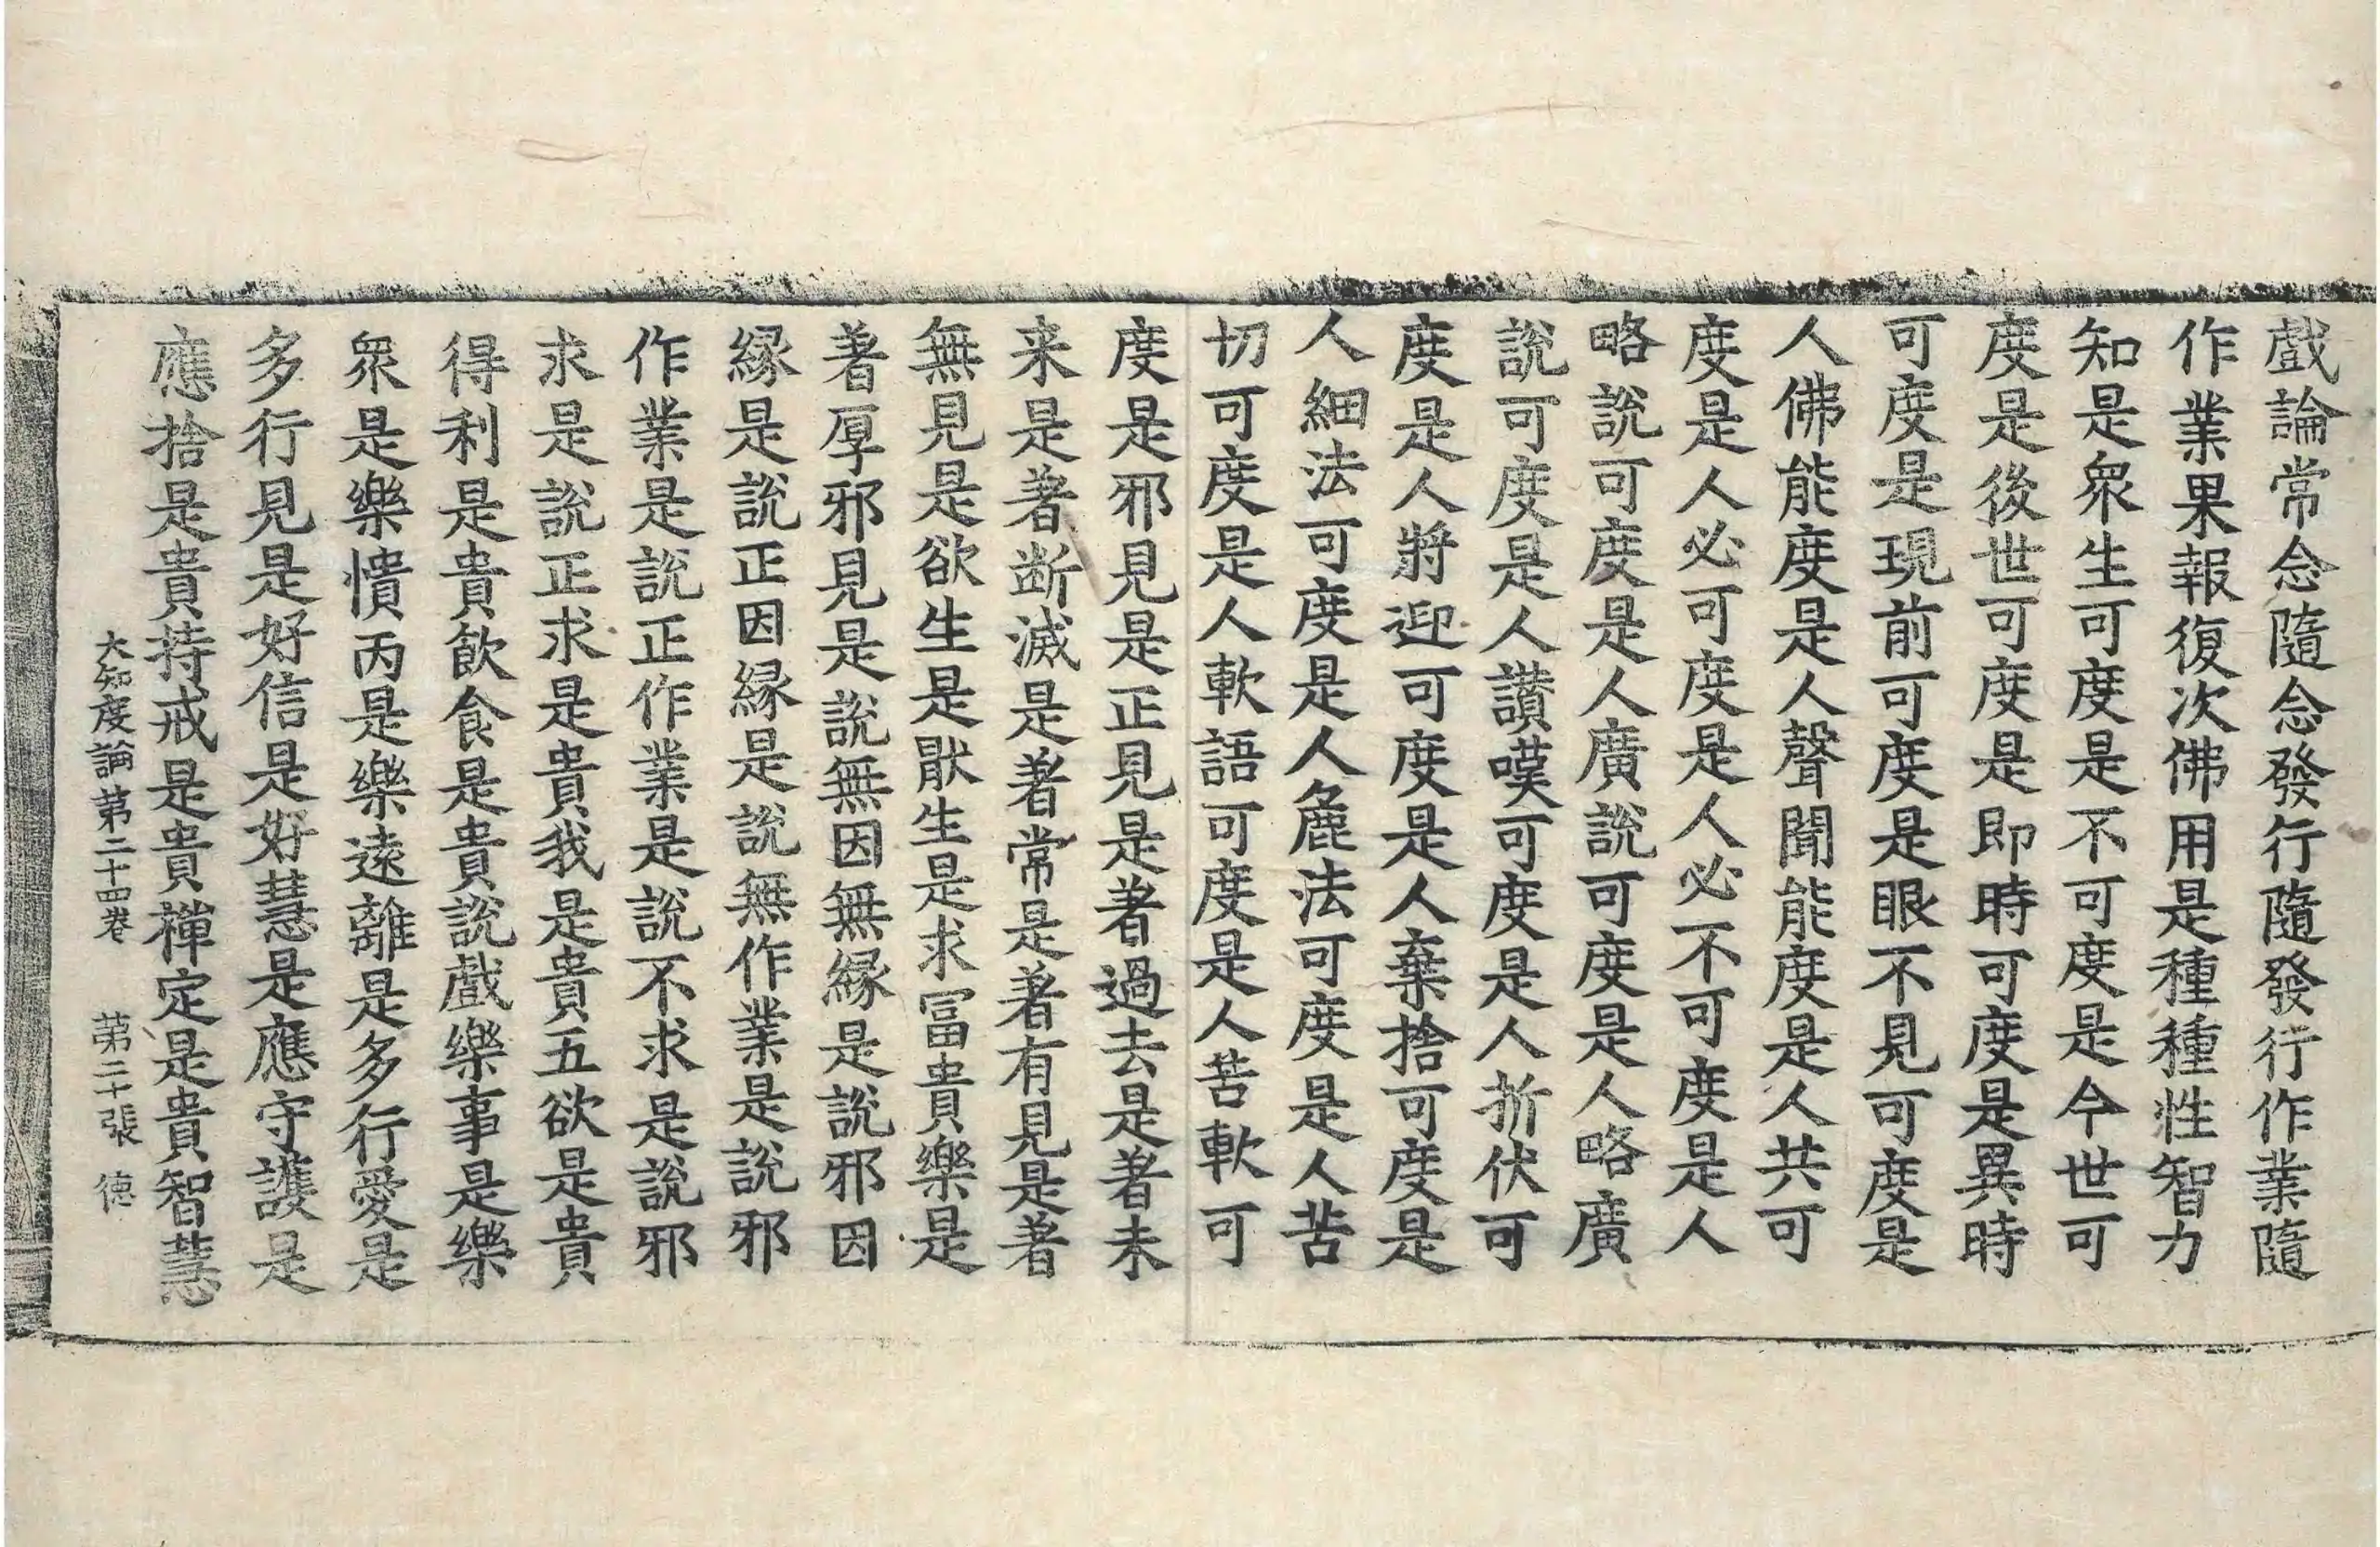 戲論常念隨念發行隨發行作業隨
作業果報復次佛用是種種性智力
知是衆生可度是不可度是今世可
度是後世可度是即時可度是異時
可度是現前可度是眼不見可度是
人佛能度是人聲聞能度是人共可
度是人必可度是人必不可度是人
略說可度是人廣說可度是人略廣
說可度是人讚嘆可度是人折伏可
度是人將迎可度是人棄捨可度是
人細法可度是人麁法可度是人苦
切可度是人軟語可度是人苦軟可
度是邪見是正見是著過去是著未
来是著断滅是著常是著有見是著
無見是欲生是猒生是求冨貴樂是
著厚邪見是說無因無縁是說邪因
縁是說正因縁是說無作業是說邪
作業是說正作業是說不求是說邪
求是說正求是貴我是貴五欲是貴
得利是貴飲食是貴說戲樂事是樂
衆是樂憒丙是樂遠離是多行愛是
多行見是好信是好慧是應守護是
應捨是貴持戒是貴禪定是貴智慧
大知度論苐二十四卷 苐二十張 德